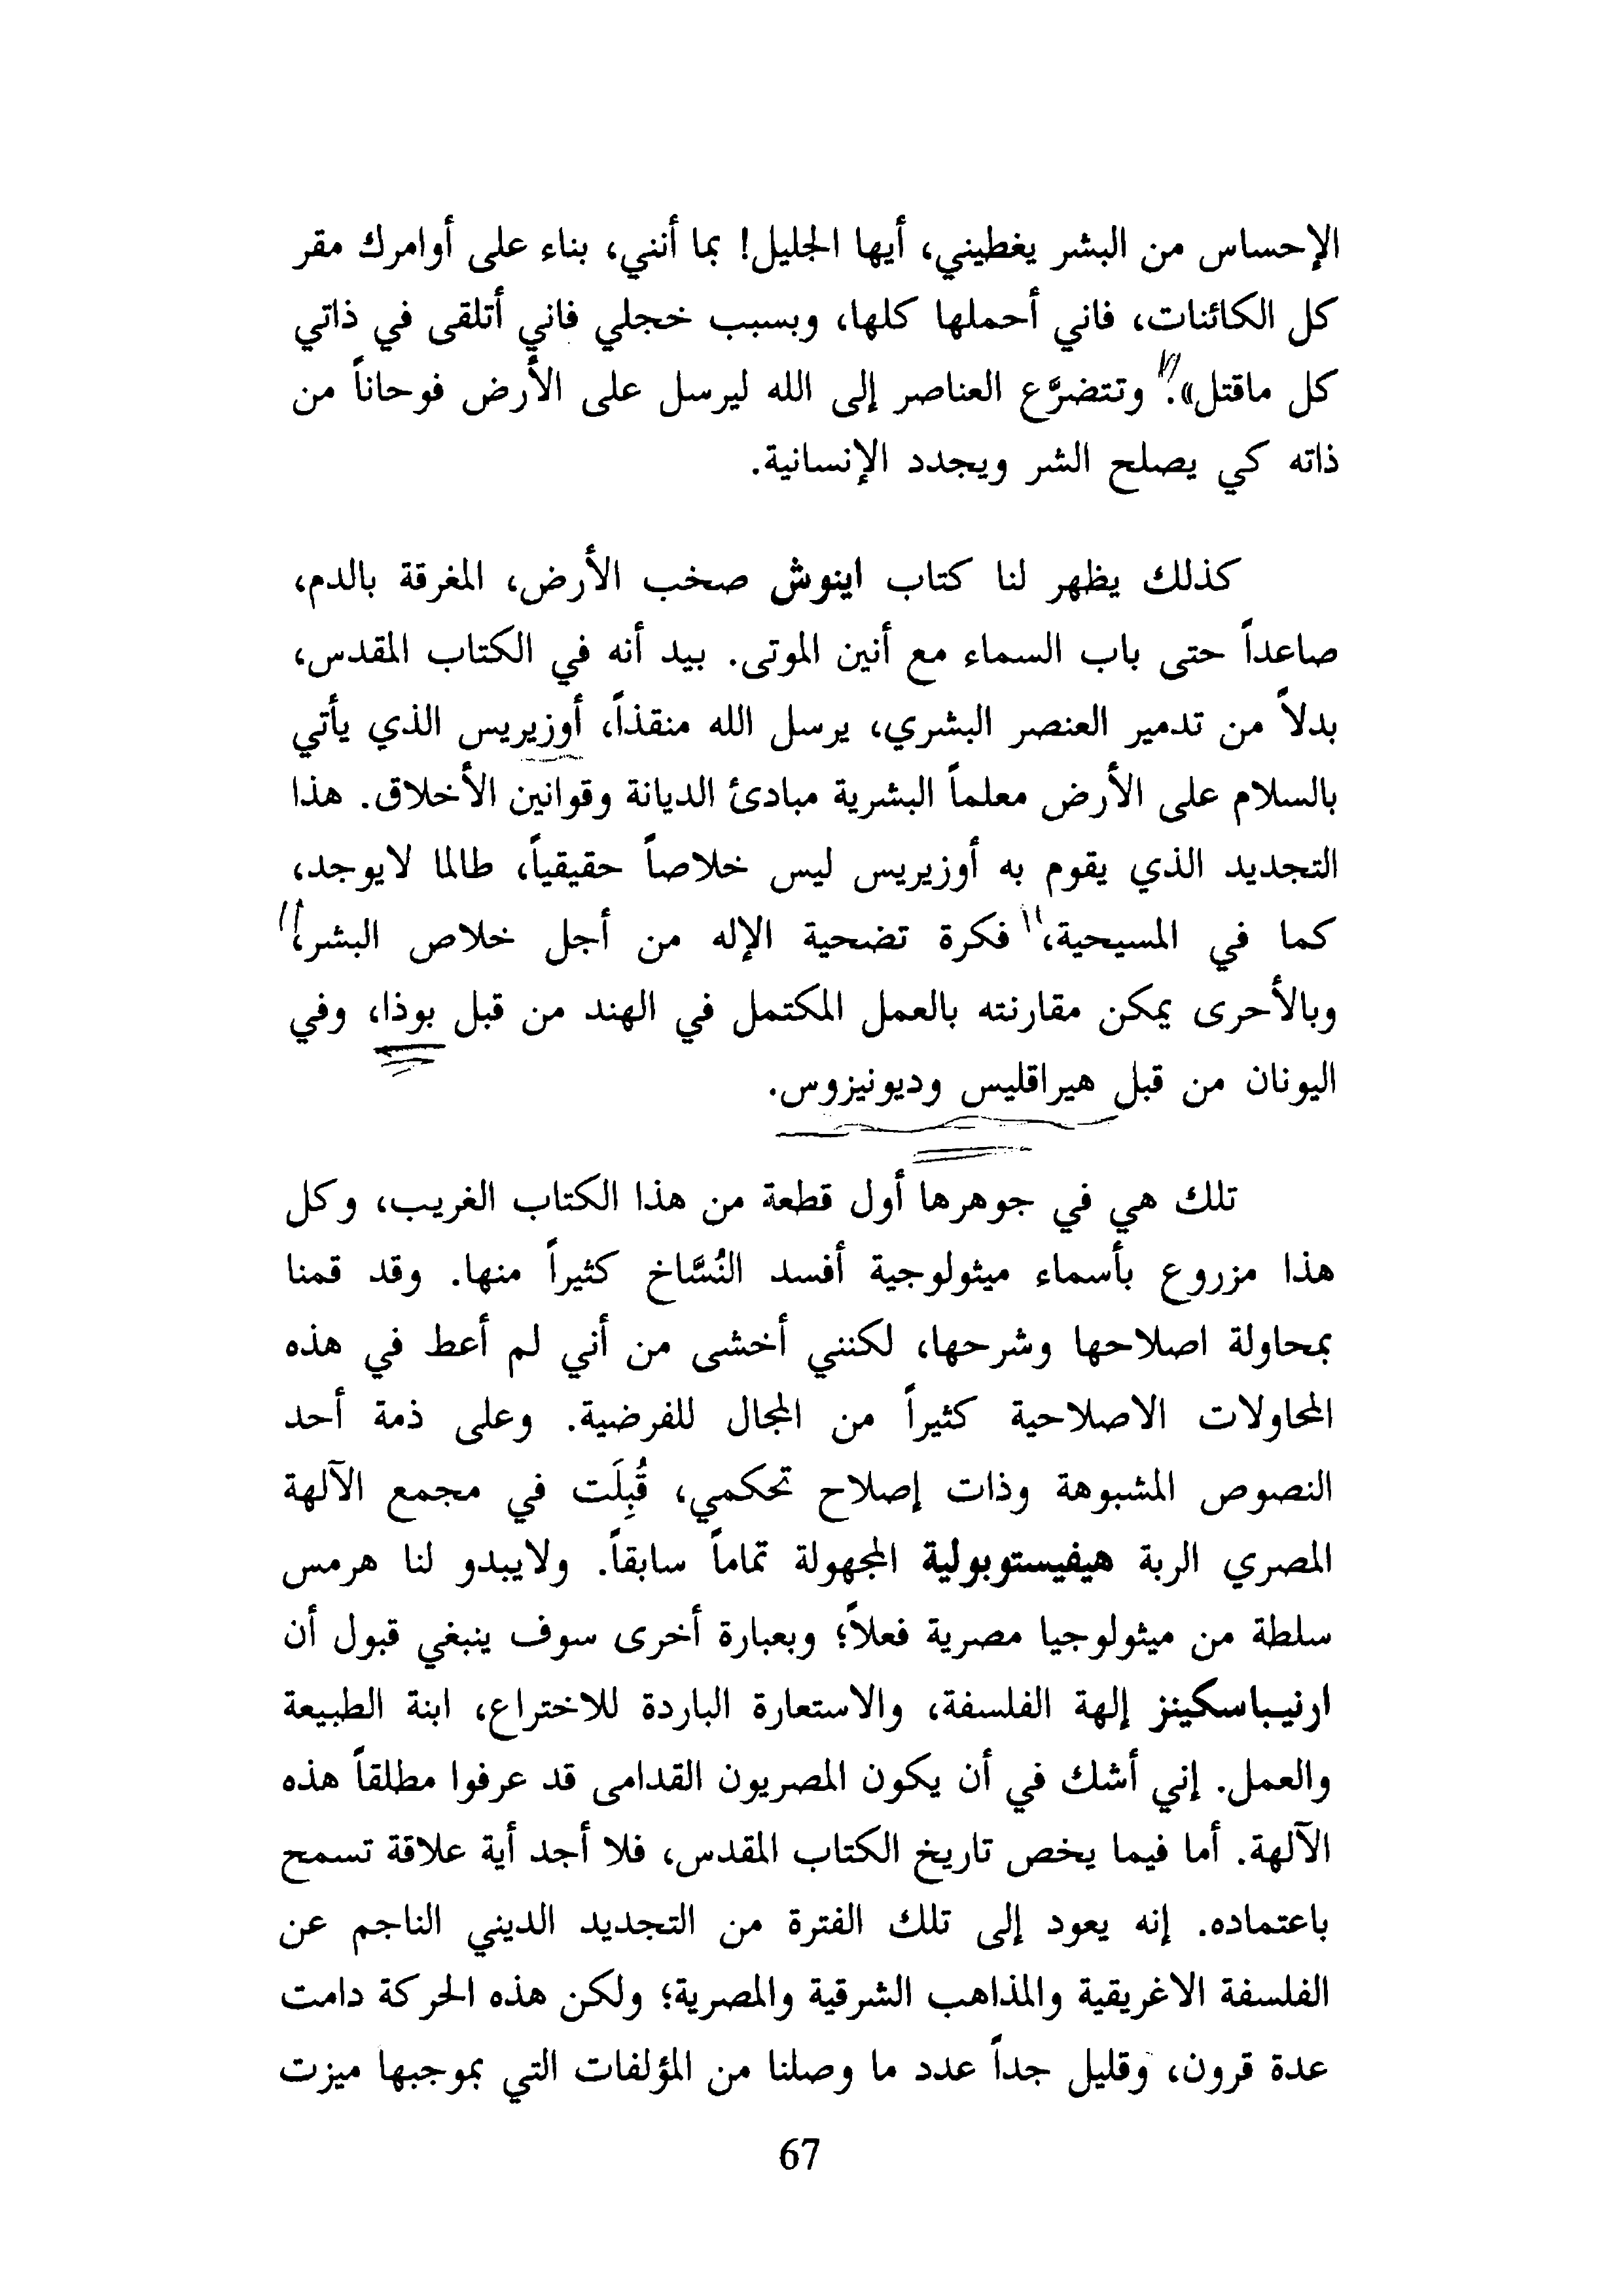 الإحساس من البشر يغطيني، أيها الجليل! بما أنني، بناء على أوامرك مقر
كل الكائنات، فاني أحملها كلها، وبسبب خجلي فاني أتلقى في ذاتي
كل ماقتل». وتتضرَّع العناصر إلى الله ليرسل على الأرض فوحاناً من
ذاته كي يصلح الشر ويجدد الإنسانية.
كذلك يظهر لنا كتاب اينوش صخب الأرض، المغرقة بالدم،
صاعداً حتى باب السماء مع أنين الموتى. بيد أنه في الكتاب المقدس،
بدلاً من تدمير العنصر البشري، يرسل الله منقذاً، أوزيريس الذي يأتي
بالسلام على الأرض معلماً البشرية مبادئ الديانة وقوانين الأخلاق. هذا
التجديد الذي يقوم به أوزيريس ليس خلاصاً حقيقياً، طالما لايوجد،
كما في المسيحية، فكرة تضحية الإله من أجل خلاص البشر،
وبالأحرى يمكن مقارنته بالعمل المكتمل في الهند من قبل بوذا، وفي
اليونان من قبل هيراقليس وديونيزوس.
تلك هي في جوهرها أول قطعة من هذا الكتاب الغريب، وكل
هذا مزروع بأسماء ميثولوجية أفسد النُسَّاخ كثيراً منها. وقد قمنا
بمحاولة اصلاحها وشرحها، لكنني أخشى من أني لم أعط في هذه
المحاولات الاصلاحية كثيراً من المجال للفرضية. وعلى ذمة أحد
النصوص المشبوهة وذات إصلاح تحكمي، قُبِلَت في مجمع الآلهة
المصري الربة هيفيستوبولية المجهولة تماماً سابقاً. ولايبدو لنا هرمس
سلطة من ميثولوجيا مصرية فعلاً؛ وبعبارة أخرى سوف ينبغي قبول أن
ارنيباسكينز إلهة الفلسفة، والاستعارة الباردة للاختراع، ابنة الطبيعة
والعمل. إني أشك في أن يكون المصريون القدامى قد عرفوا مطلقاً هذه
الآلهة. أما فيما يخص تاريخ الكتاب المقدس، فلا أجد أية علاقة تسمح
باعتماده. إنه يعود إلى تلك الفترة من التجديد الديني الناجم عن
الفلسفة الاغريقية والمذاهب الشرقية والمصرية؛ ولكن هذه الحركة دامت
عدة قرون، وقليل جداً عدد ما وصلنا من المؤلفات التي بموجبها ميزت
67